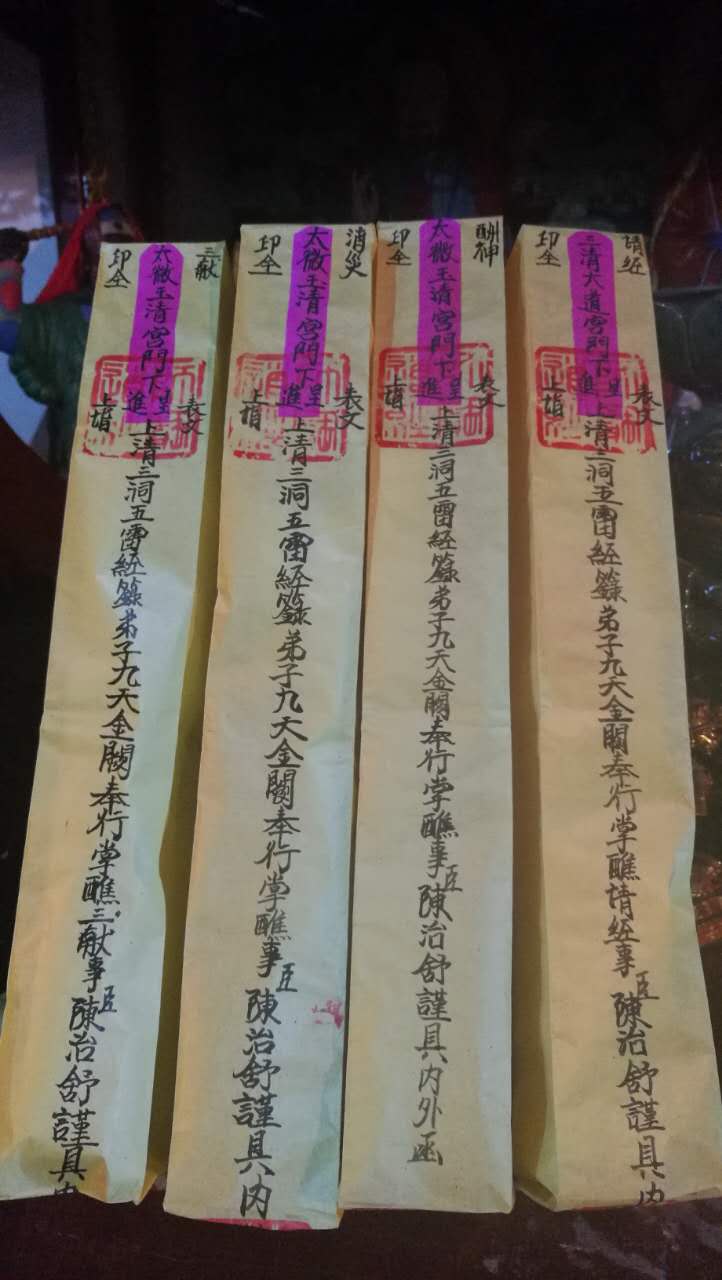 請經
表文
三清大道宮門下呈進上清三洞五雷經籙弟子九天金闕奉行掌醮請經事臣陳治舒謹具内
印全
上詣
酬神
表文
太微玉清宮門下呈進上清三洞五雷經籙弟子九天金闕奉行掌醮事臣陳治舒謹具内外函
印全
上詣
消災
表文
太微玉清宮門下呈進上清三洞五雷經籙弟子九天金闕奉行掌醮事臣陳治舒謹具内
印全
上詣
三献
表文
太微玉清宮門下呈進上清三洞五雷經籙弟子九天金闕奉行掌醮三献事臣陳治舒謹具内
印全
上詣